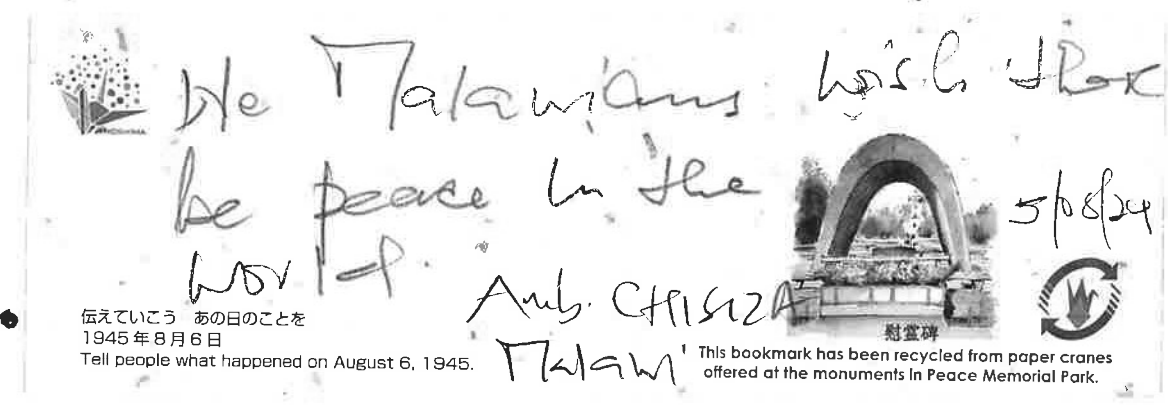 We Malawians wish ther
be peace in the
world.
5/08/24
Amb. CHISIZA
Malawi
HIROSHIMA
伝えていこう あの日のことを
1945年8月6日
Tell people what happened on August 6, 1945.
慰霊碑
This bookmark has been recycled from paper cranes
offered at the monuments in Peace Memorial Park.